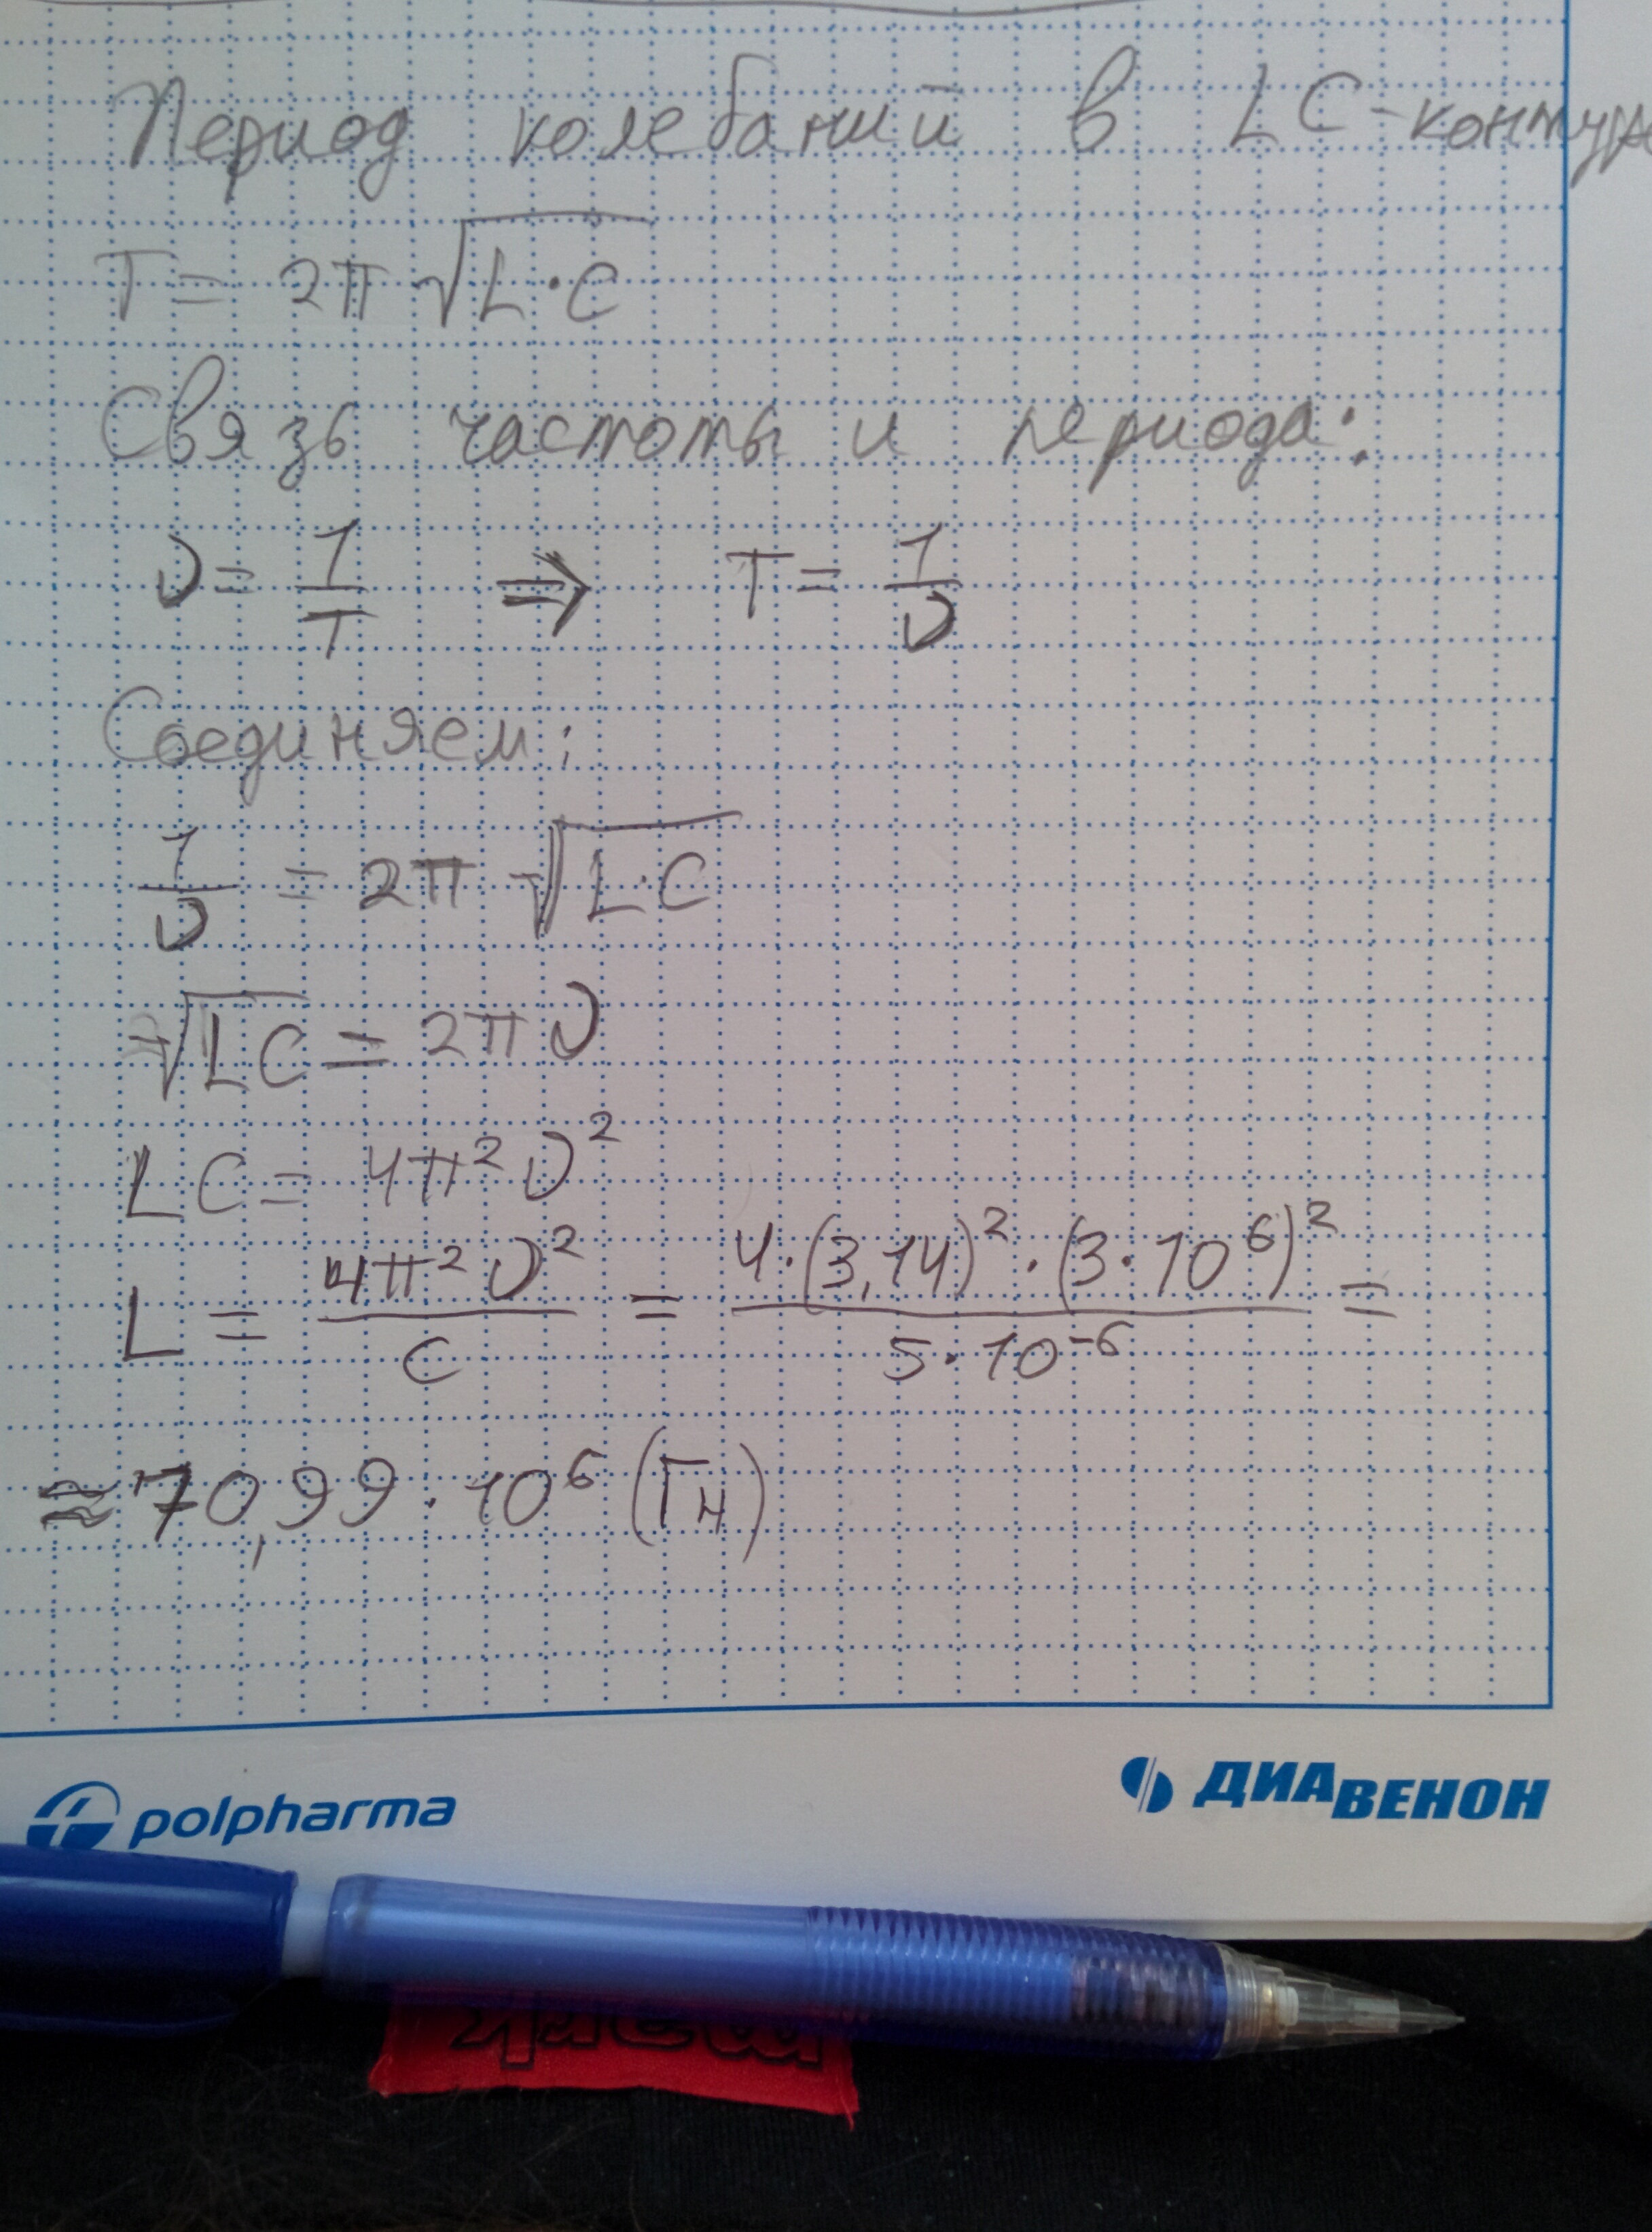 Период колебаний в LC-контуре
T = 2π √L·C
Связь частоты и периода:
ν = 1/T ⇒ T = 1/ν
Соединяем:
1/ν = 2π √L·C
√LC = 2πν
LC = 4π²ν²
L = 4π²ν²/C = 4·(3,14)²·(3·10⁶)²/5·10⁻⁶ =
≈ 70,99·10⁶ (Гн)
polpharma
ДИАВЕНОН